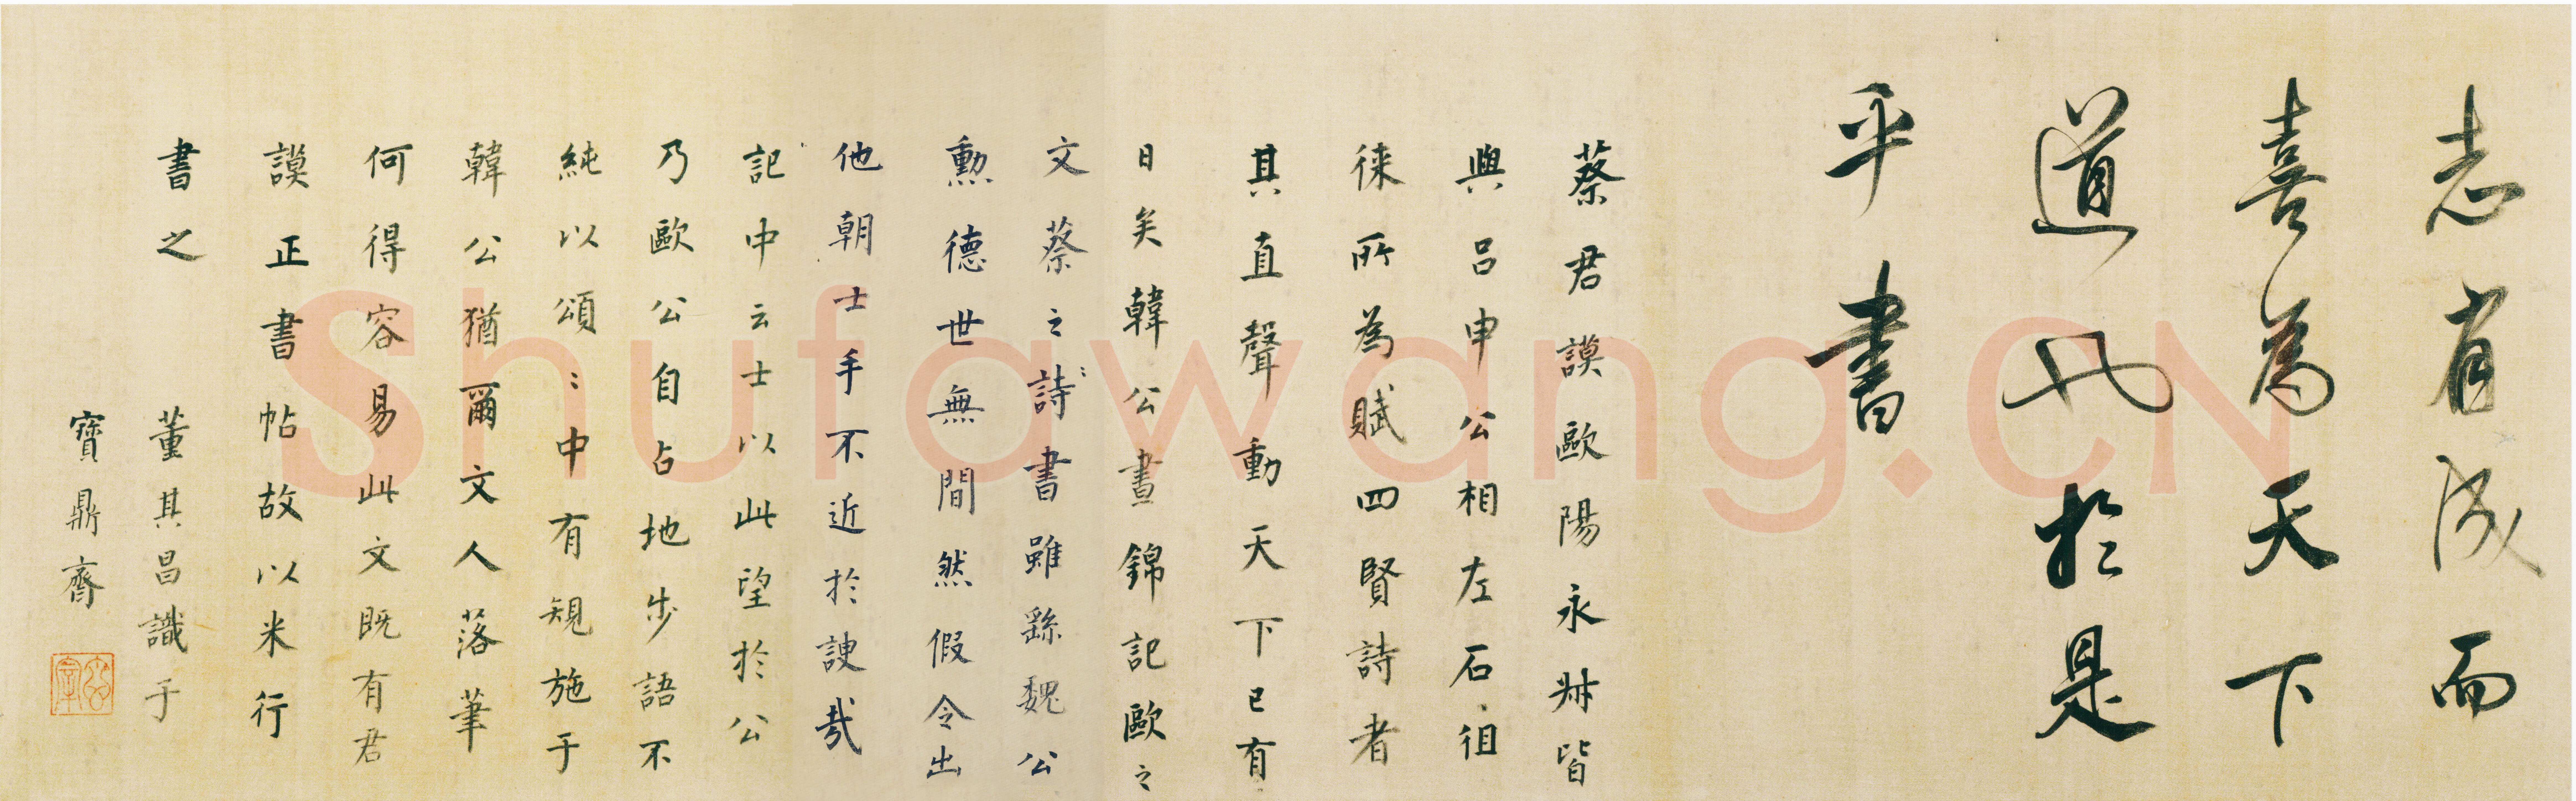 志有成而
喜為天下
道也於是
乎書
蔡君謨歐陽永叔皆
與呂申公相左石徂
徠所為賦四賢詩者
其直聲動天下已有
日矣韓公晝錦記歐之
文蔡之書雖繇魏公
詩
勳德世無間然假令出
他朝士手不近於諛哉
記中云士以此望於公
乃歐公自占地步語不
純以頌頌中有規施于
韓公猶爾文人落筆
何得容易此文既有君
謨正書帖故以米行
書之
董其昌識于
寶鼎齋
Shufawang.CN